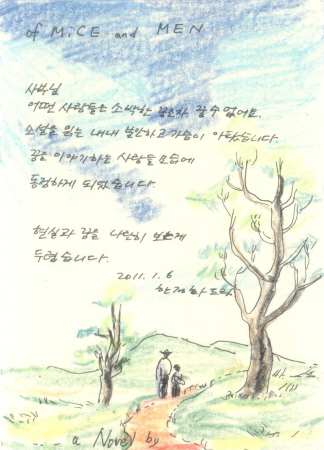 of MiCE and MEN
사부님
어떤 사람들은 소박한 꿈조차 꿀 수 없어요.
소설을 읽는 내내 불안하고 가슴이 아팠습니다.
꿈을 이야기하는 사람들 모습에
동정하게 되었습니다.
현실과 꿈을 나란히 보는게
두렵습니다.
2011. 1. 6
a Novel by